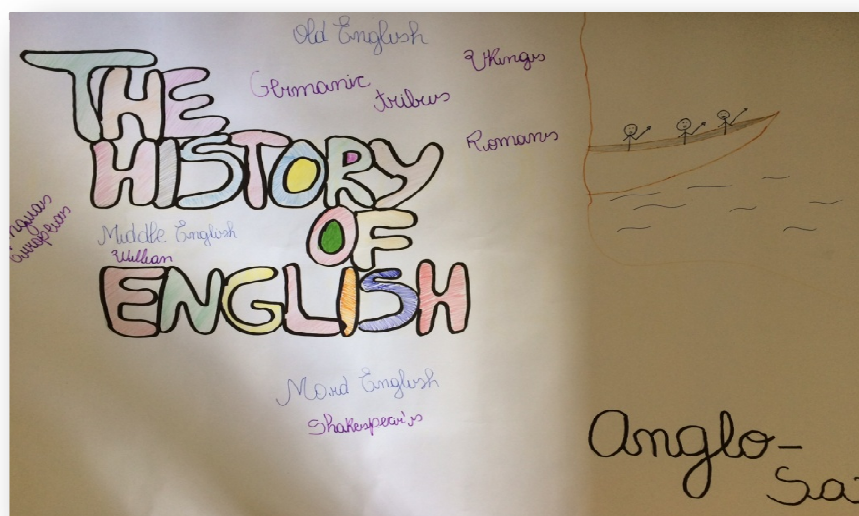 Old English
Vikings
Germanic
tribus
Romans
THE
HISTORY
OF
ENGLISH
europeias
Middle English
Willian
Mord English
Shakespear's
Anglo-